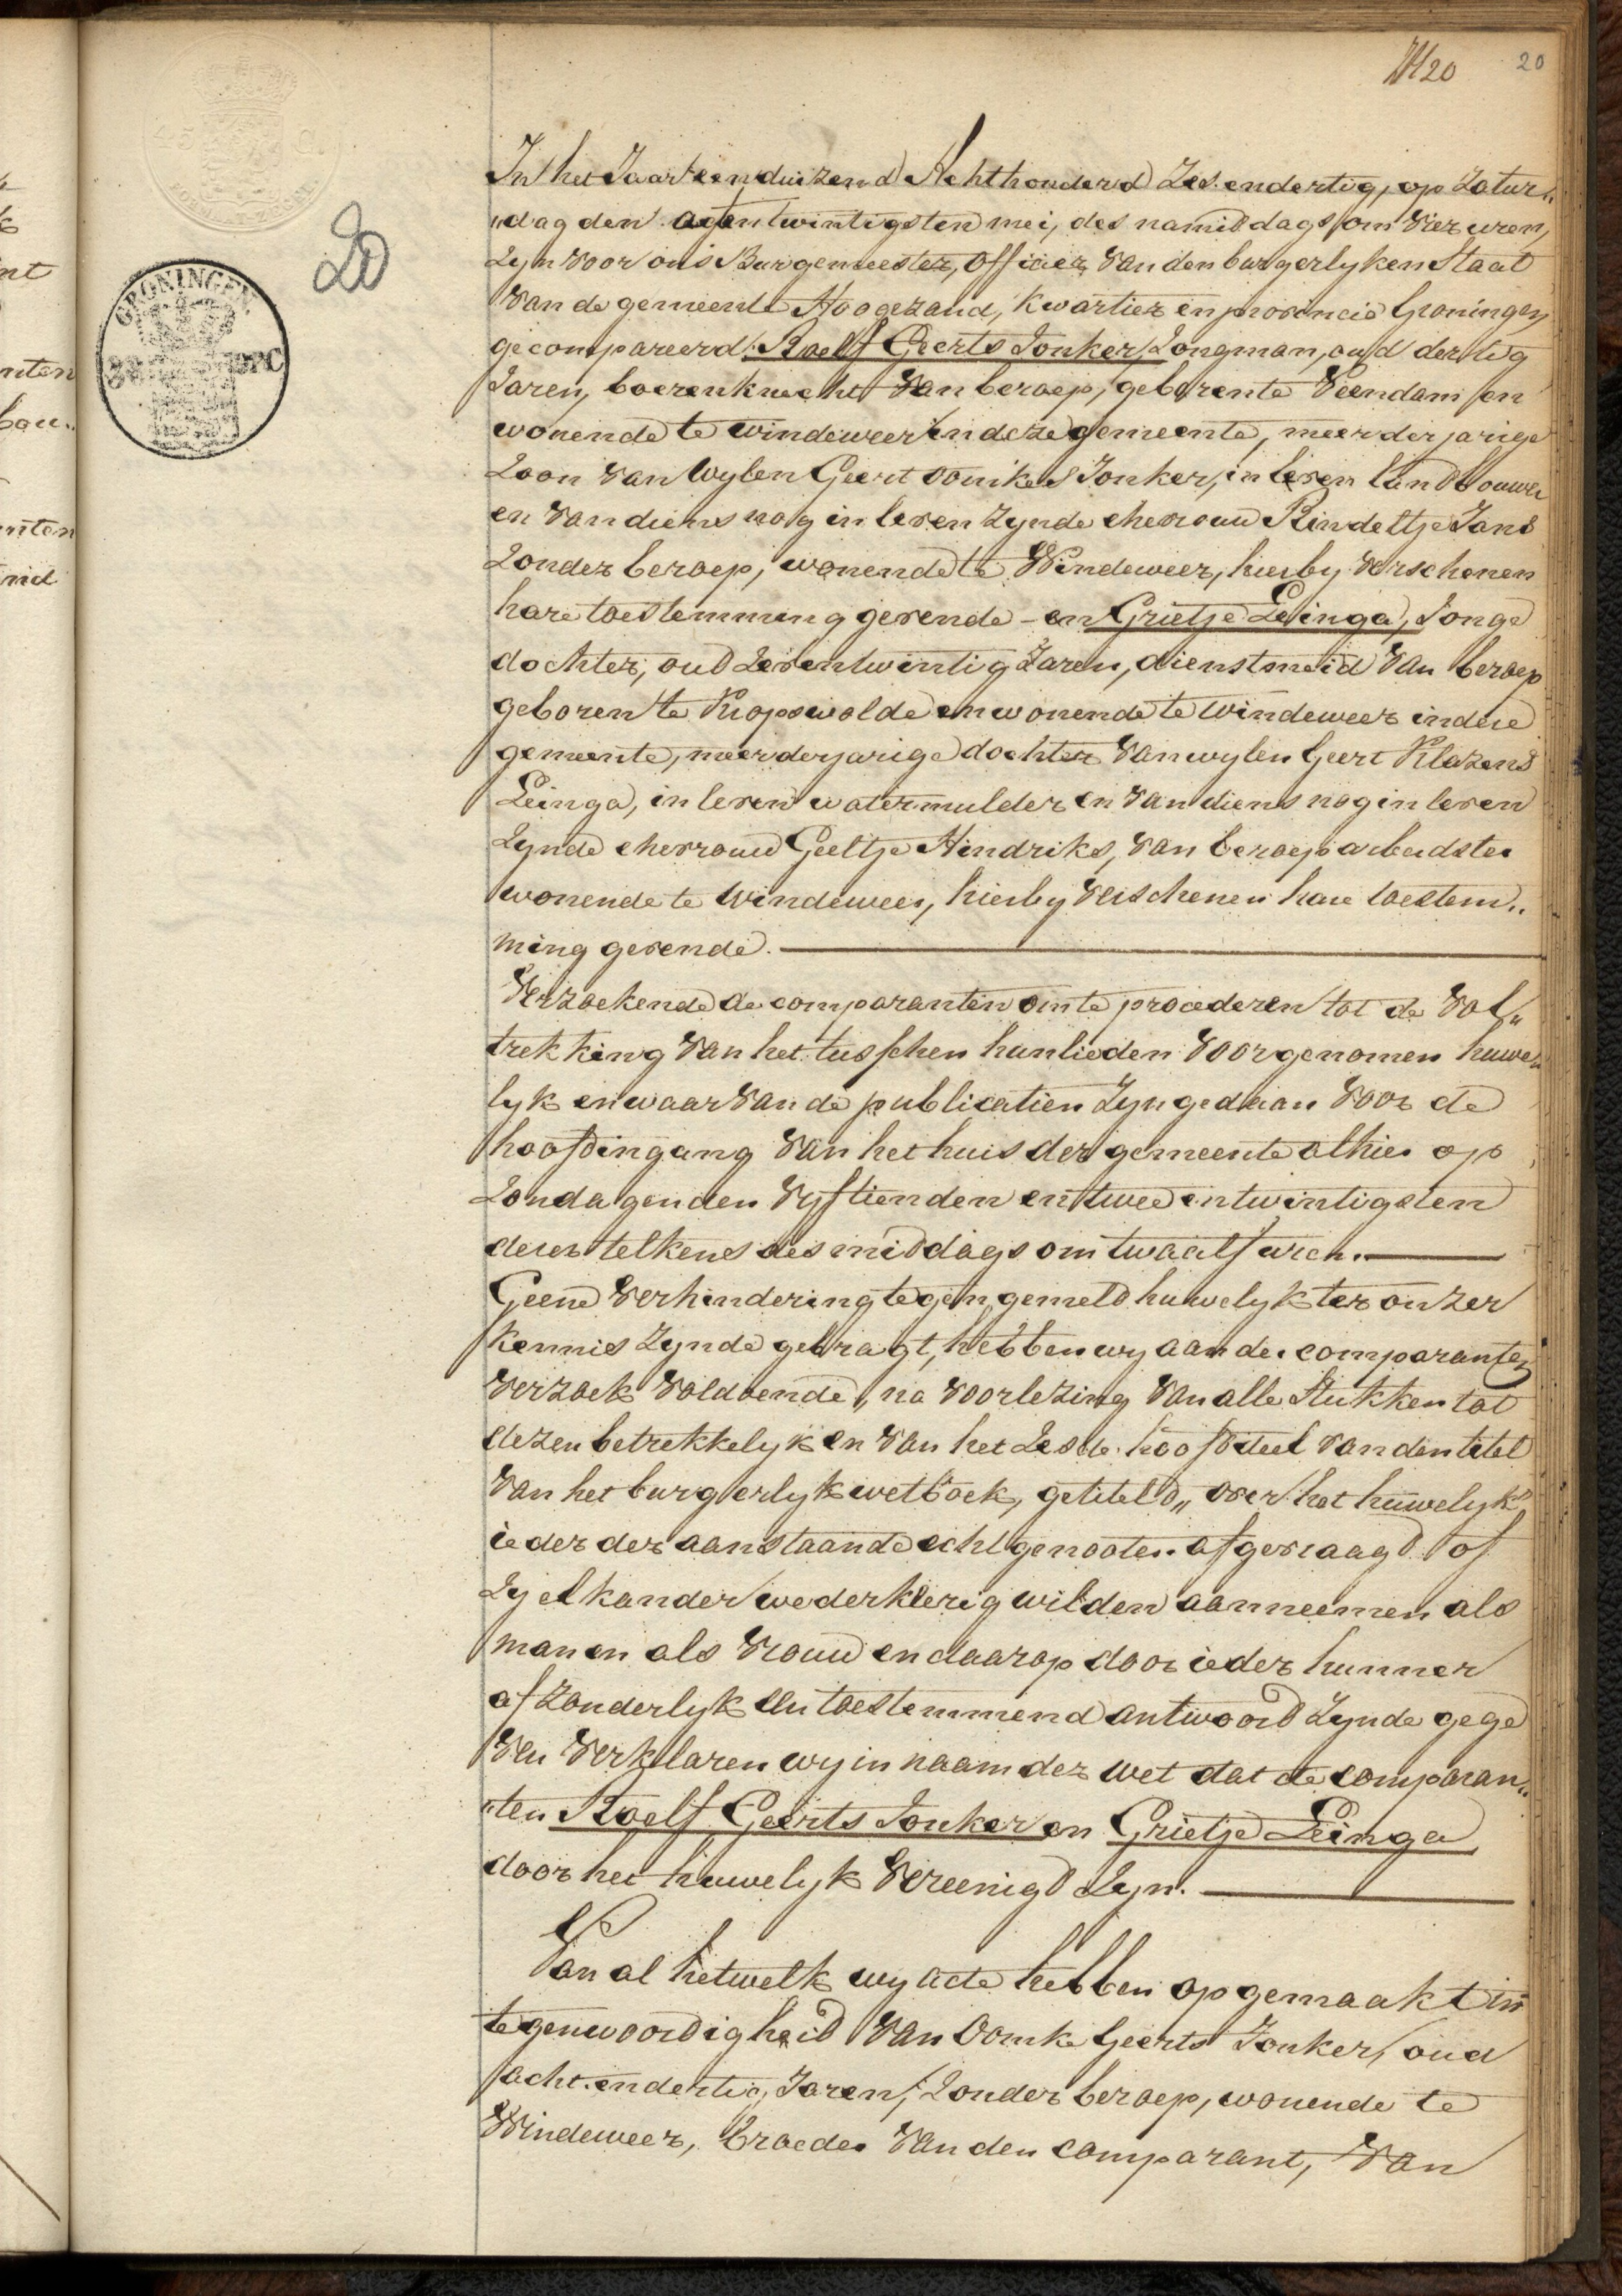 20
20
20
GRONINGEN.
In het Jaar eenduizend Achthonderd Zes endertig, op Zatur„
„dag den agtentwintigsten mei, des namiddags om vier uren,
Zyn voor ons Burgemeester, officier van den burgerlyken Staat
van de gemeente Hoogezand, Kwartier en provincie Groningen
gecompareerd Roelf Geerts Jonker, Jongman, oud dertig
Jaren, boerenknecht van beroep, geboren te Veendam en
wonende te windeweer in deze gemeente, meerderjarige
Zoon van wylen Geert Ooomkes Jonker, in leven landbouwer
en van diens nog in leven Zynde ehevrouw Rindeltje Jans
Zonder beroep, wonende te Windeweer, hierby verschenen
hare toestemming gevende - en Grietje Leinga, Jonge
dochter, oud Zeventwintig Jaren, dienstmeid van beroep
geboren te Kropswolde en wonende te windeweer in deze
gemeente, meerderjarige dochter van wylen Geert Klazens
Leinga, in leven watermulder en van diens nog in leven
Zynde ehevrouw Geeltje Hindriks, van beroep arbeidster
wonende te Windeweer, hierby verschenen hare toestem„
ming gevende.
Verzoekende de comparanten om te procederen tot de vol„
trekking van het tusschen hunlieden voorgenomen huwe„
lyk en waarvan de publicatien Zyn gedaan voor de
hoofdingang van het huis der gemeente alhier op
Zondagen den vyftienden en twee entwintigsten
dezer telkens des middags om twaalf uren.
Geene verhindering tegen gemeld huwelyk ter onzer
kennis Zynde gebragt, hebben wy aan der comparanten
verzoek voldoende, na voorlezing van alle Stukken tot
dezen betrekkelyk en van het Zesde hoofddeel van den titel
van het burgerlyk wetboek, getiteld „over het huwelyk"
ieder der aanstaande echtgenooten afgevraagd of
Zy elkander wederkerig wilden aanneemen als
man en als vrouw en daarop door ieder hunner
afzonderlyk een toestemmend antwoord Zynde gege
ven verklaren wy in naam der wet dat de comparan„
„ten Roelf Geerts Jonker en Grietje Leinga
door het huwelyk vereenigd Zyn.
Van al hetwelk wy acte hebben opgemaakt in
tegenwoordigheid van Oomke Geerts Jonker, oud
acht endertig Jaren, Zonder beroep, wonende te
Windeweer, broeder van den comparant, van